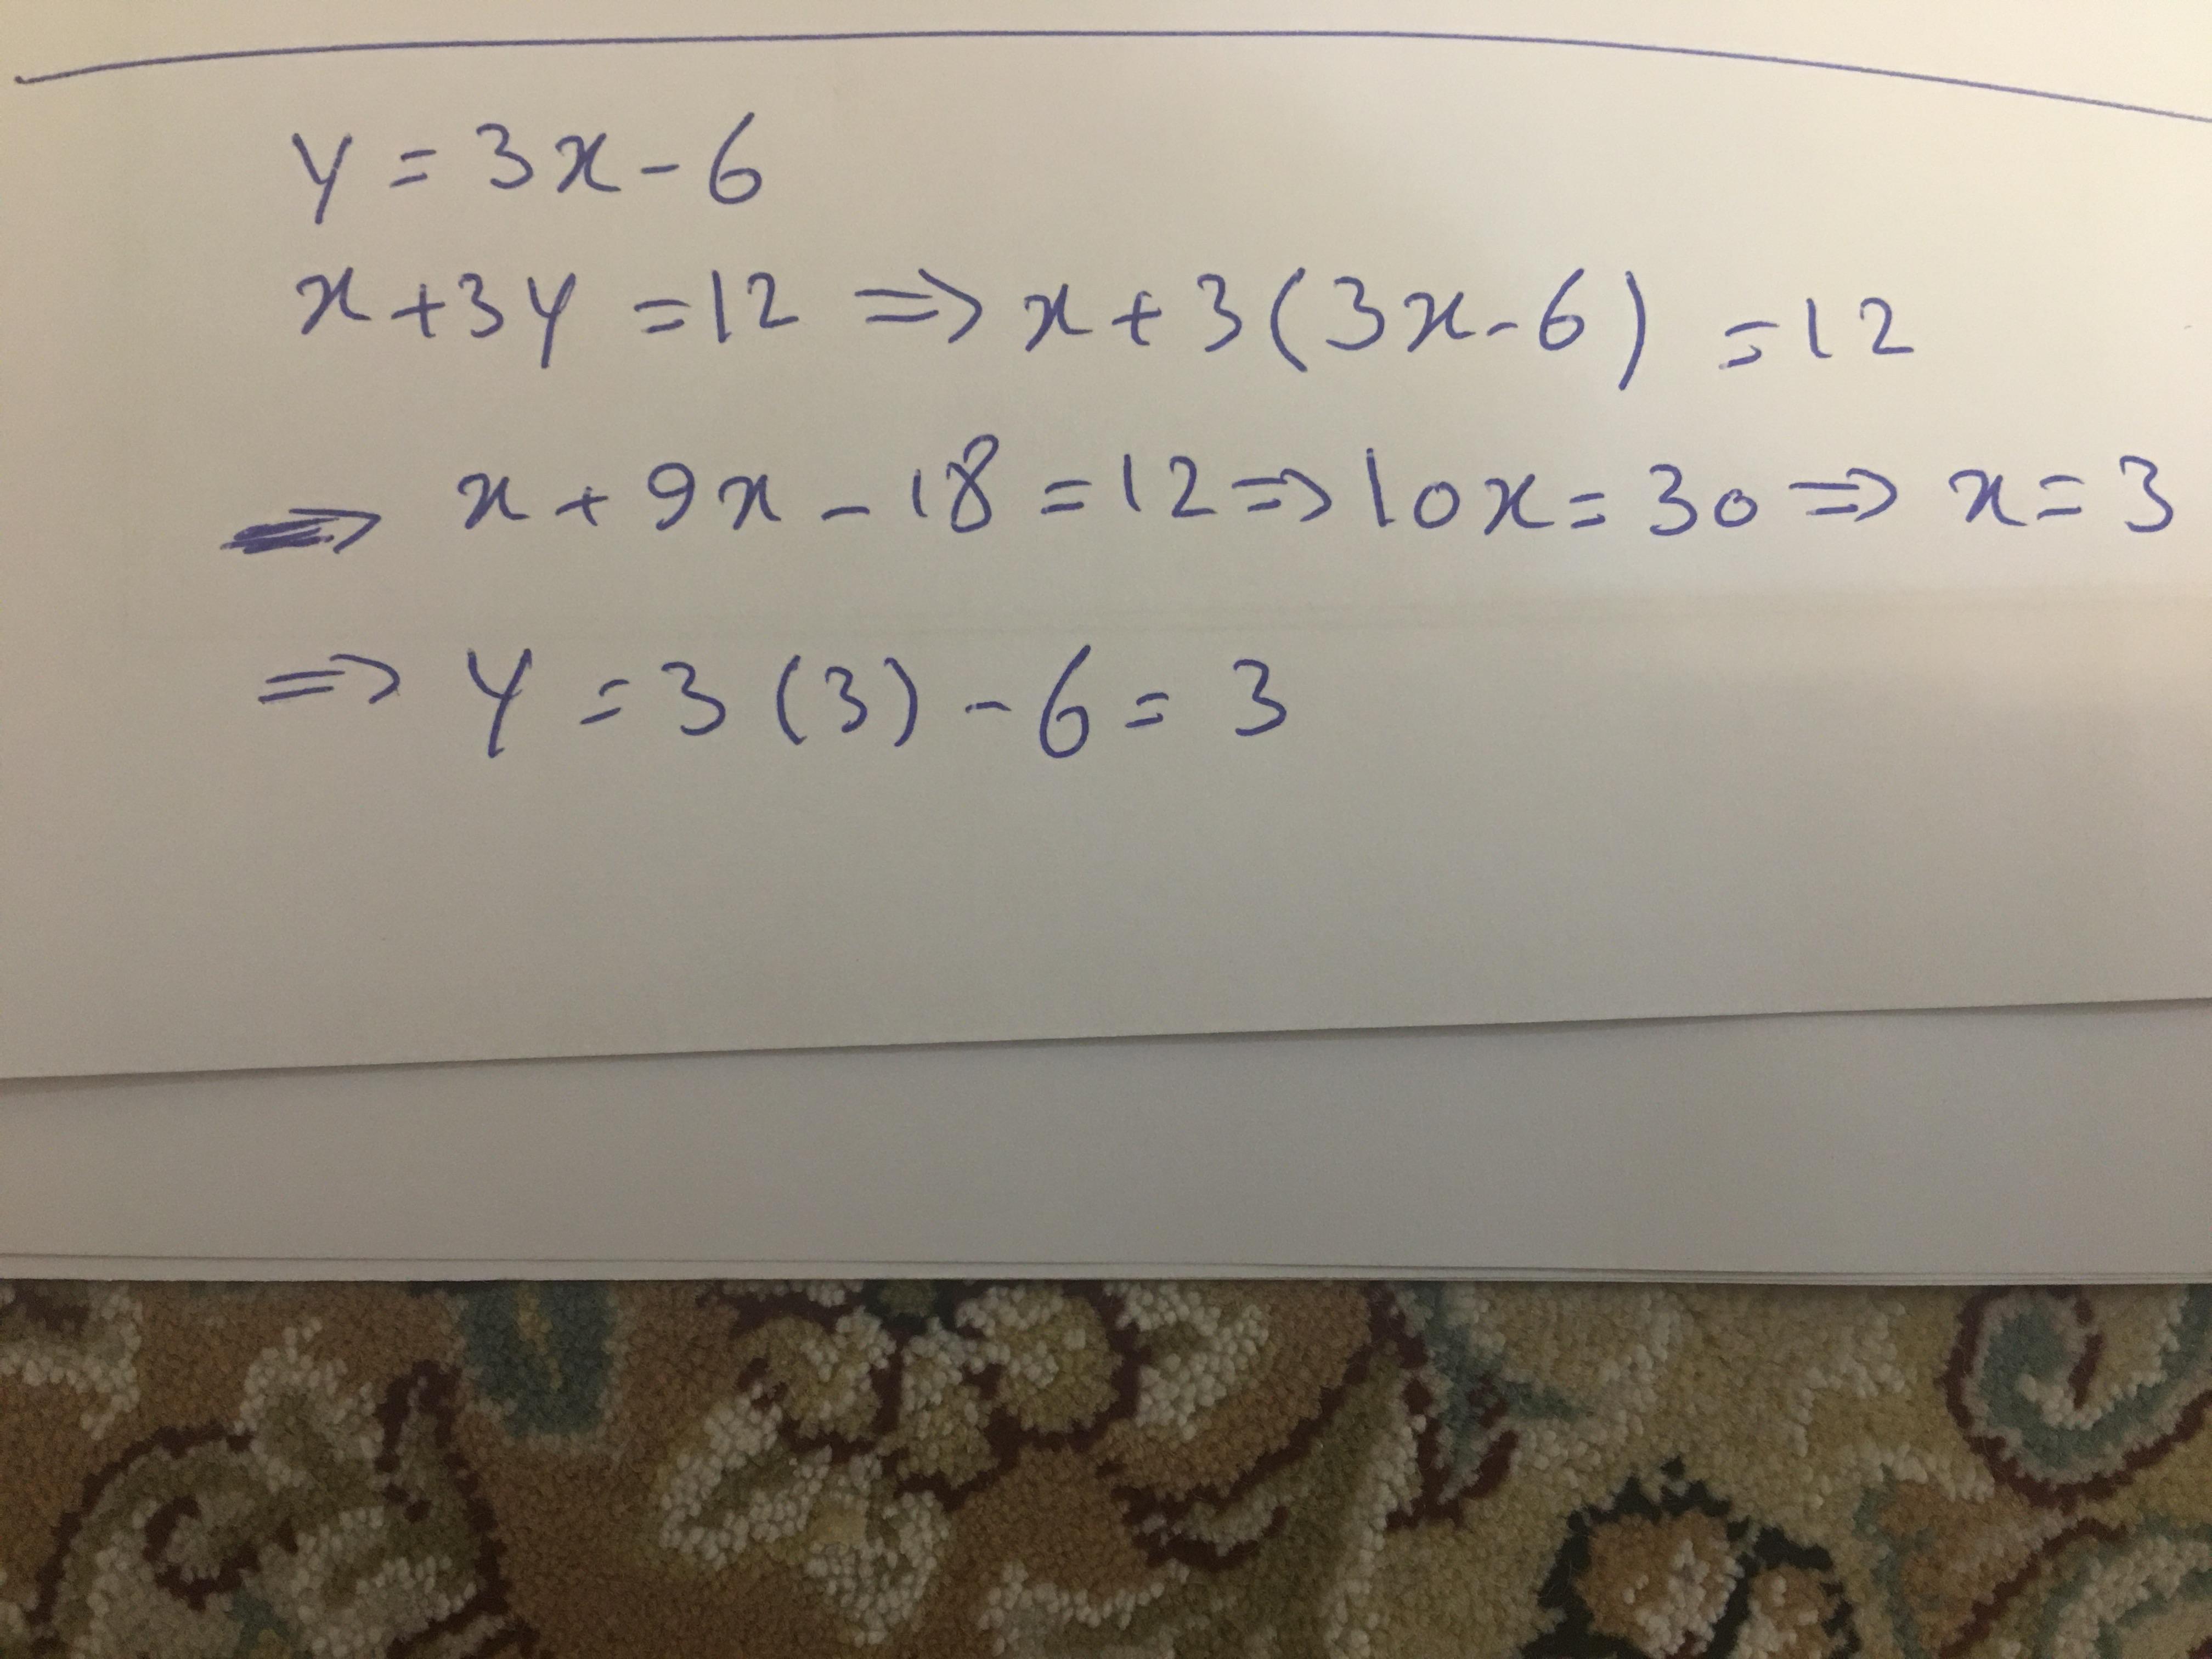 y = 3x - 6
x + 3y = 12 => x + 3(3x - 6) = 12
=> x + 9x - 18 = 12 => 10x = 30 => x = 3
=> y = 3(3) - 6 = 3